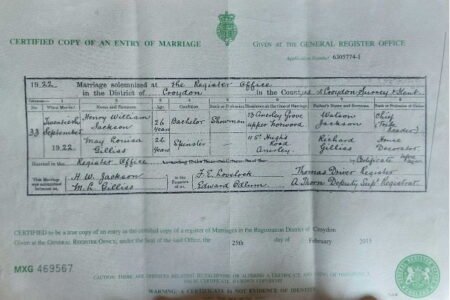 CERTIFIED COPY OF AN ENTRY OF MARRIAGE
GIVEN AT THE GENERAL REGISTER OFFICE
Application Number 6305774-1
1922 Marriage solemnized at The Register Office
in the District of Croydon in the County of Croydon Surrey & Kent
When Married Name and Surname Age Condition Rank or Profession Residence at the time of Marriage Father's Name and Surname Rank or Profession
33 Twentieth September 1922
Henry William Jackson 26 years Bachelor Showman Grove upper norwood Watson Jackson Chief
May Louisa Gillies 26 years Spinster Road Anerley Richard Gillies House Decorator
Married in the Register Office by Certificate before me
This Marriage was solemnized between us
H. W. Jackson
M. L. Gillies
in the Presence of us
F. E. Lovelock
Edward Odlum
Thomas Diver Registrar
A Thorn Deputy Supt Registrar
CERTIFIED to be a true copy of an entry in the certified copy of a register of Marriages in the Registration District of Croydon
Given at the GENERAL REGISTER OFFICE, under the Seal of the said Office, the 25th day of February 2015
MXG 469567
CAUTION: THERE ARE OFFENCES RELATING TO FALSIFYING OR ALTERING A CERTIFICATE
WARNING: A CERTIFICATE IS NOT EVIDENCE OF IDENTITY.